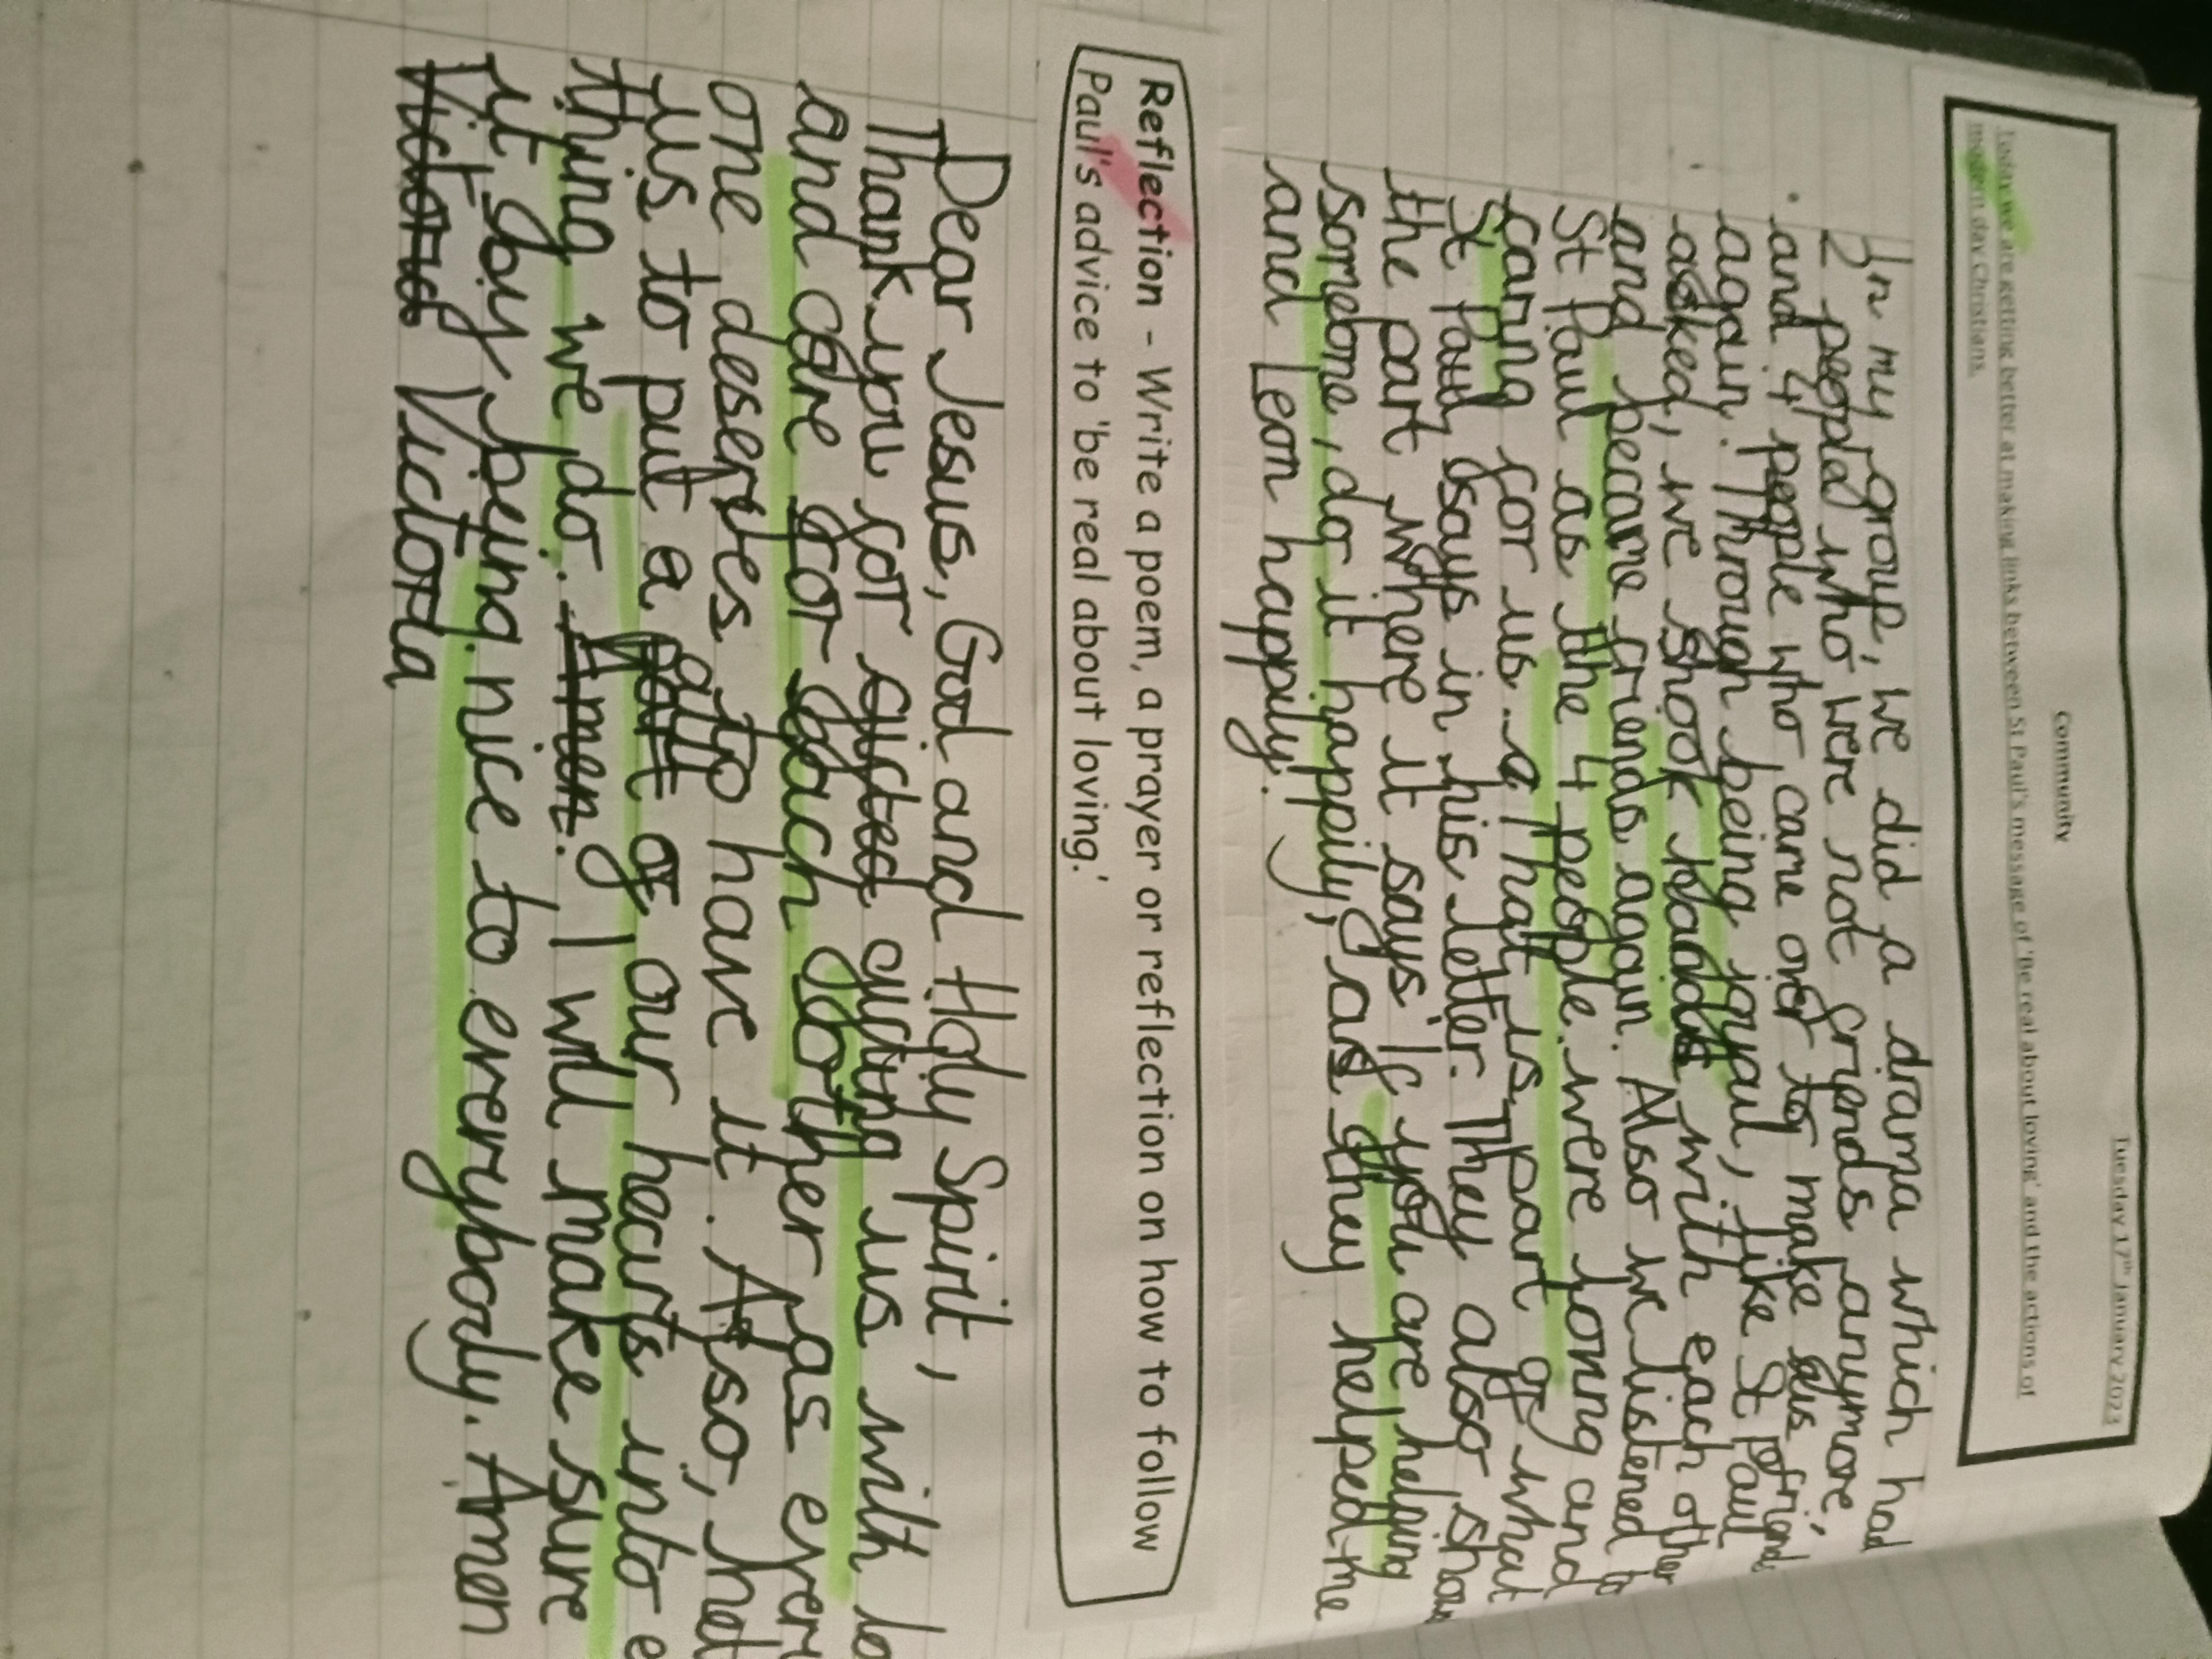 Tuesday 17th January 2023
Community
Today we are getting better at making links between St Paul's message of 'Be real about loving' and the actions of
modern day Christians.
In my group, we did a drama which had
2 people who were not friends anymore,
and 4 people who came over to make us friends
again. Through being joyful, like St Paul
asked, we shook hands with each other
and became friends again. Also we listened to
St Paul as the 4 people were loving and
caring for us. That is part of what
St Paul says in his letter. They also show
the part where it says 'If you are helping
someone, do it happily,' as they helped me
and Leon happily!
Reflection - Write a poem, a prayer or reflection on how to follow
Paul's advice to 'be real about loving.'
Dear Jesus, God and Holy Spirit,
Thank you for gifted gifting us with
and care for each other as every
one deserves to have it. Also,
us to put a part of our hearts into
thing we do. Amen. I will make sure
it by being nice to everybody. Amen
Victoria